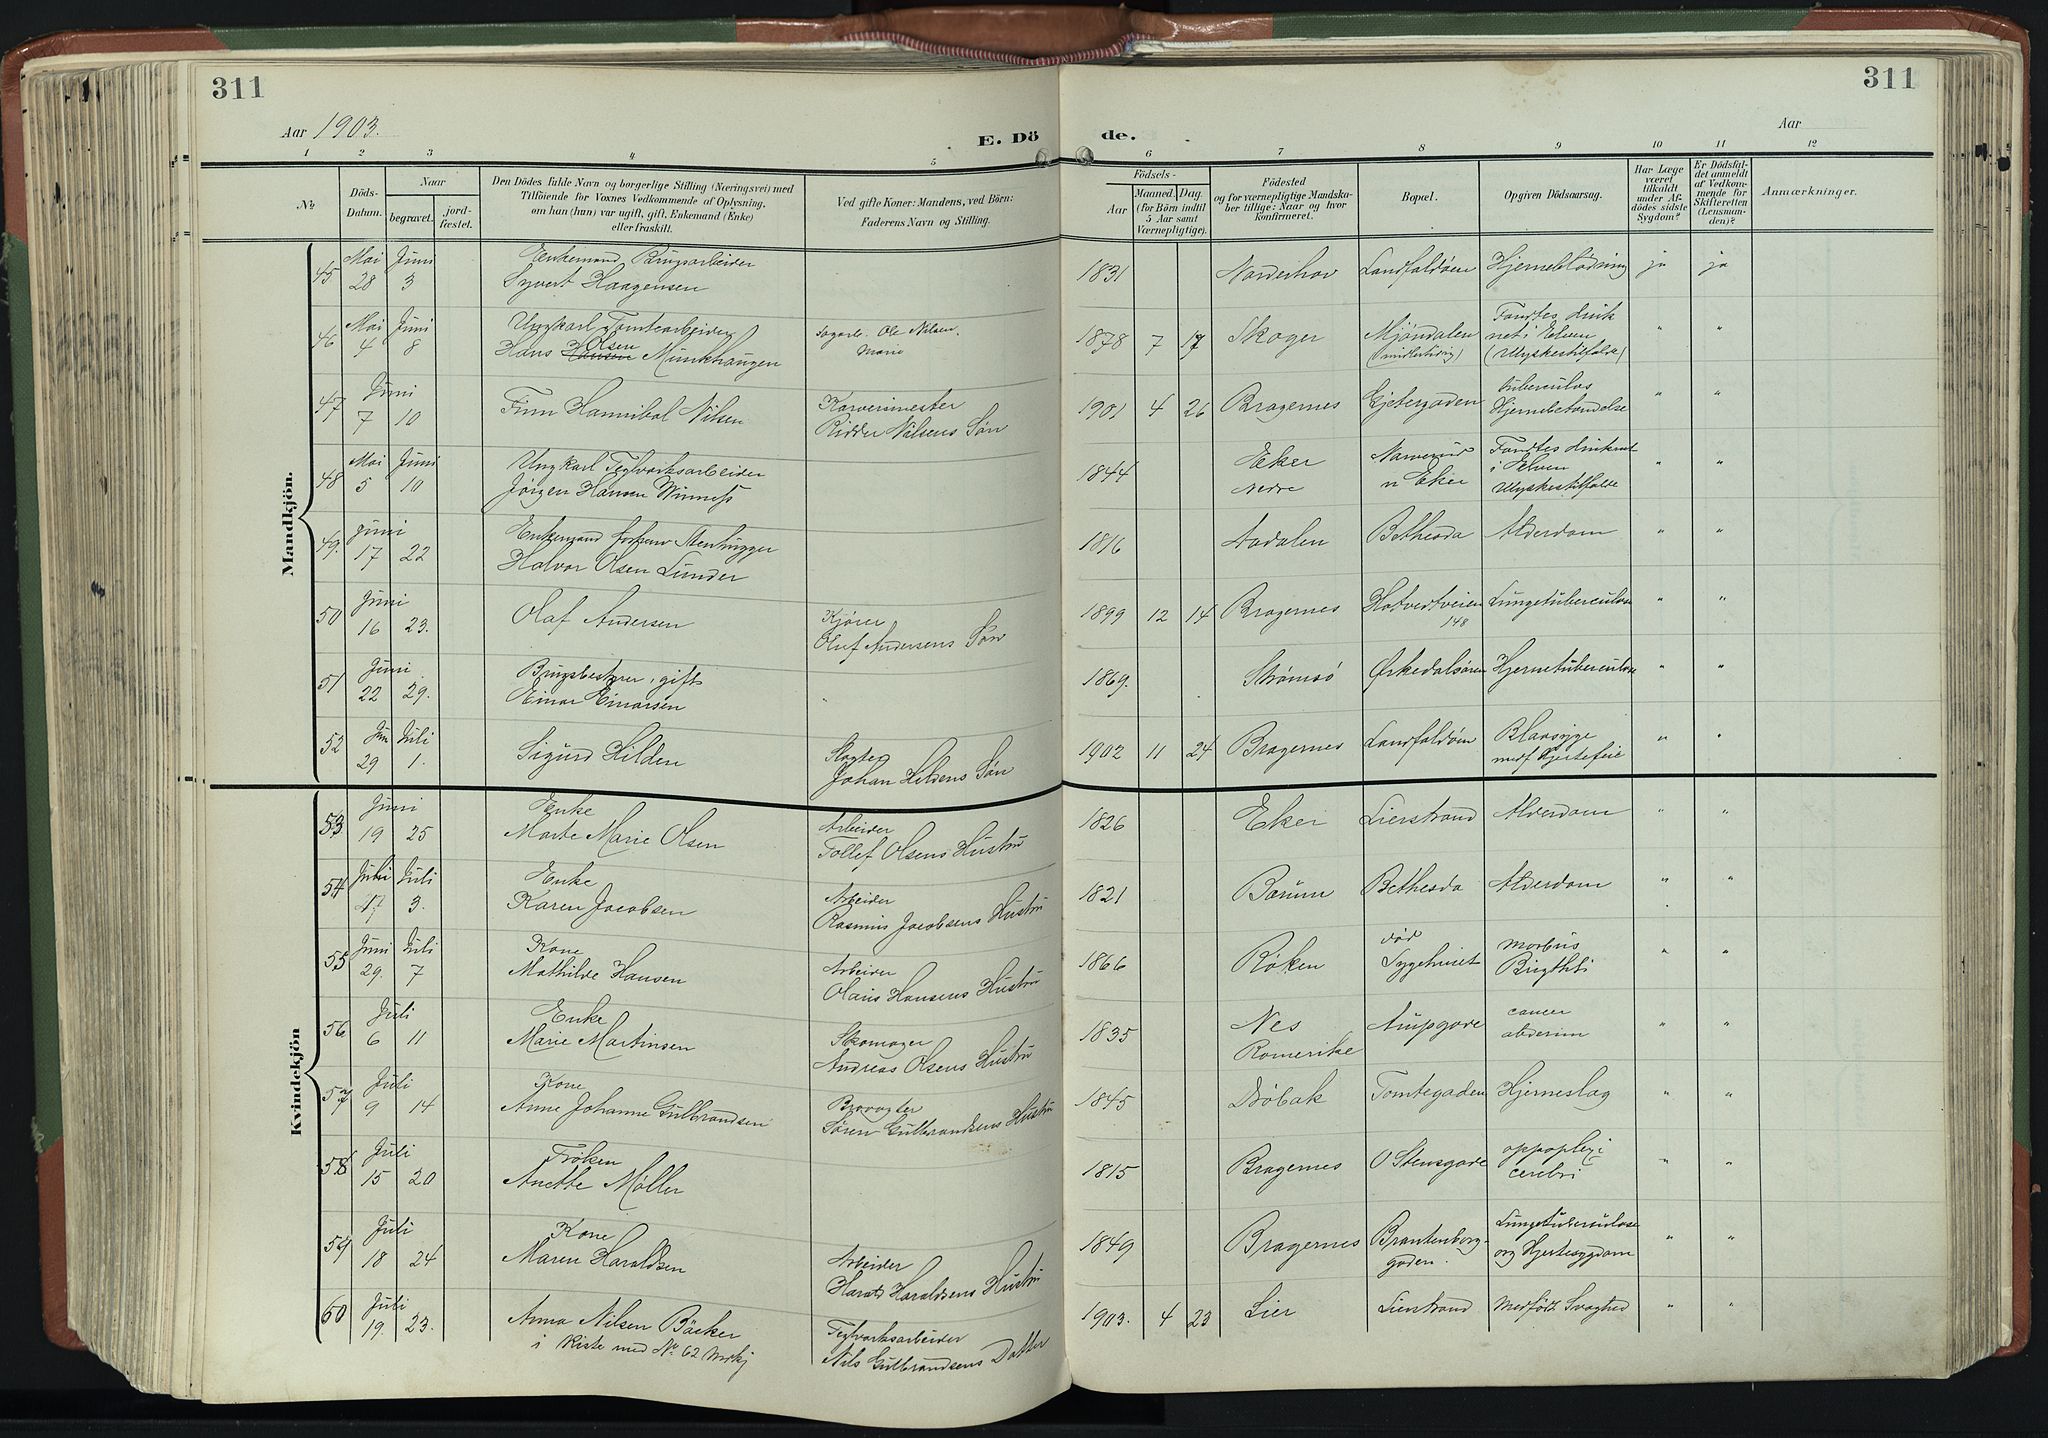 311
311
Aar 1903.
E. Dö de.
Aar
1 2 3 4 5 6 7 8 9 10 11 12
No.
Döds-Datum.
Naar
begravet.
jord-fæstet.
Den Dödes fulde Navn og borgerlige Stilling (Næringsvei) med
Tilföiende for Voxnes Vedkommende af Oplysning,
om han (hun) var ugift, gift, Enkemand (Enke)
eller fraskilt.
Ved gifte Koner: Mandens, ved Börn:
Faderens Navn og Stilling.
Födsels-
Aar
Maaned. Dag.
(for Börn indtil
5 Aar samt
Værnepligtige).
Födested
og for værnepligtige Mandska-
ber tillige: Naar og hvor
konfirmeret.
Bopæl.
Opgiven Dödsaarsag.
Har Læge
været
tilkaldt
under Af-
dödes sidste
Sygdom?
Er Dödsfal-
det anmeldt
af Vedkom-
mende for
Skifteretten
(Lensman-
den)?
Anmærkninger.
Mandkjön.
45 Mai 28 Juni 3 Enkemand, Brugsarbeider
Syvert Haagensen 1831 Norderhov Landfaldøen Hjerneblødning ja ja
46 Mai 4 Juni 8 Ungkarl Tomtearbeider
Hans Hansen Olsen Munkhaugen Sagarb. Ole Nilsen.
Marie 1878 7 17 Skoger Mjøndalen
(midlertidig) Fandtes druk
net i Elven
(Ulykkestilfælde) " "
47 Juni 7 10 Finn Hannibal Nilsen Karversmester
Ridder Nilsens Søn 1901 4 26 Bragernes Gjetergaden tuberculøs
Hjernebetændelse " "
48 Mai 5 Juni 10 Ungkarl Teglværksarbeider
Jørgen Hansen 1844 Eker
nedre
n Eker Fandtes druknet
i Elven
Ulykkestilfælde " "
49. Juni 17 22 Enkemand Stenhugger
Halvor Olsen Lunder 1816 Aadalen Bethesda Alderdom " "
50 Juni 16 23. Olaf Andersen Kjører
Oluf Andersens Søn 1899 12 14 Bragernes Hotvedtveien
148 Lungetuberculose " "
51 Juni 22 29. Brugsbestyrer, gift
Einar Einarsen " 1869. Strømsø Ørkedalsøren Hjernetuberculose " "
52 Jun 29 Juli 1. Sigurd Hilden Slagter
Johan Hildens Søn 1902 11 24 Bragernes Landfaldøen Blaasyge
medf Hjertefeil " "
Kvindekjön
53 Juni 19 25 Enke
Marte Marie Olsen Arbeider
Tollef Olsens Hustru 1826 Eker Lierstrand Alderdom " "
54 Juli 3. Enke
Karen Jacobsen Arbeider
Rasmus Jacobsens Hustru 1821 Bærum Bethesda Alderdom " "
55 Juni 29. Juli 7 Kone
Mathilde Hansen Arbeider
Olaus Hansens Hustru 1866 Røken død
Sygehuset morbus
Brigthti " "
56 Juli 6 11 Enke
Marie Martinsen Skomager
Andreas Olsens Hustru 1835 Nes
Romerike Amtpgade cancer
abdorim " "
57 Juli 9 14 Kone
Anne Johanne Gulbrandsen Brovagter
Søren Gulbrandsens Hustru 1845 Drøbak Tomtegaden Hjerneslag " "
58 Juli 15 20 Frøken
Anette Møller 1815 Bragernes O Stensgade appoplexi
cerebri " "
59 Juli 18 24 Kone
Maren Haraldsen Arbeider
Harald Haraldsens Hustru 1849 Bragernes Brantenborg-
gaden. Lungetuberculose
og Hjertesygdom " "
60 Juli 19. 23. Anna Nilsen Bäcker
i Kiste med No 62 Mkj Teglværksarbeider
Nils Gulbrandsens Datter 1903. 4 23 Lier Lierstrand Medfödt Svaghed " "